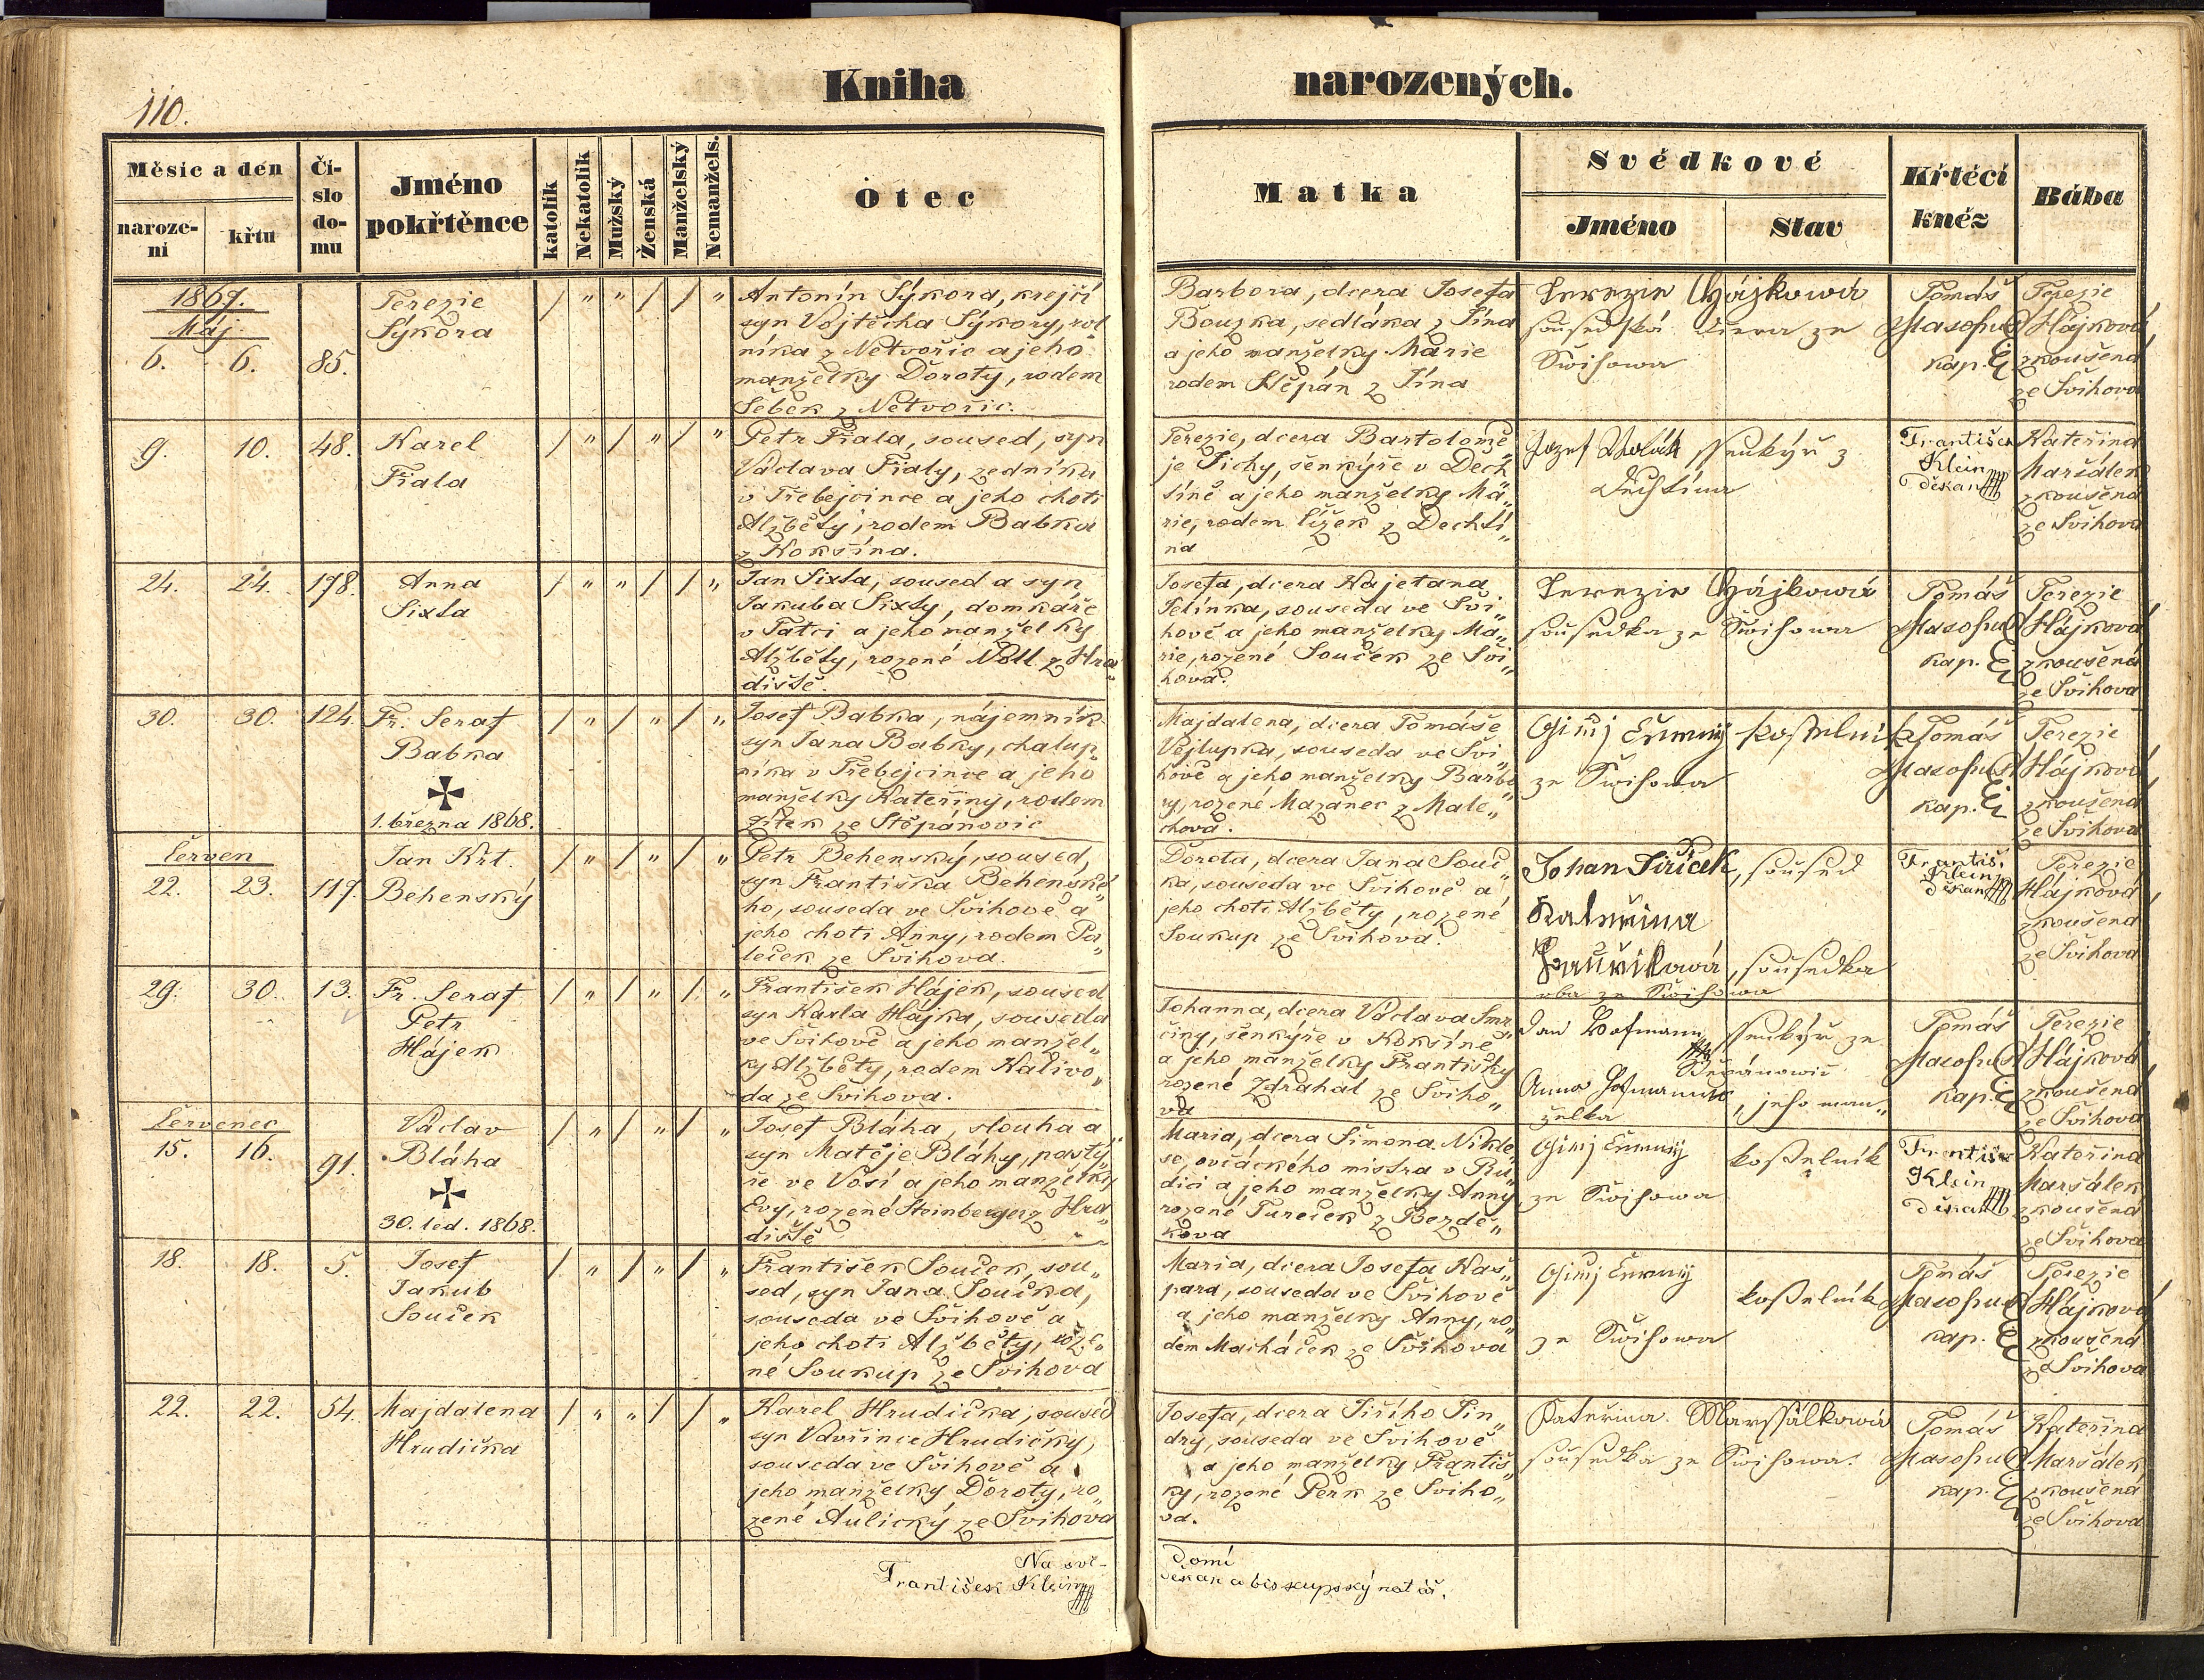 110.
Kniha narozených.
Měsíc a den
narození
křtu
Číslo domu
Jméno pokřtěnce
katolík
Nekatolík
Mužský
Ženská
Manželský
Nemanžels.
Otec
Matka
Svědkové
Jméno
Stav
Křtěcí kněz
Bába
1867.
Máj.
6. 6. 85.
Terezie
Sýkora
Antonín Sýkora, krejčí
syn Vojtěcha Sýkory, rol
níka z Netvořic a jeho
manželky Doroty, rodem
Šebek z Netvořic.
Barbora, dcera Josefa
Bouzka, sedláka z Jína
a jeho manželky Marie
rodem Štěpán z Jína
Terezie Hájkowá
sousedská dcera ze
Šwihowa
Tomáš
Masopust
kap.
Terezie
Hájková
zkoušená
ze Švihova
9. 10. 48.
Karel
Fiala
Petr Fiala, soused, syn
Václava Fialy, zedníka
v Třebejcince a jeho choti
Alžběty, rodem Babka
z Kokšína.
Terezie, dcera Bartolomě„
je Tichý, šenkýře v Dech
tíně a jeho manželky Ma„
rie, rodem Čížek z Dechtí„
na
Jozef šenkýř z
Dechtína
František
Klein
děkan
Kateřina
Maršálek
zkoušená
ze Švihova
24. 24. 178.
Anna
Sixta
Jan Sixta, soused a syn
Jakuba Sixty, domkáře
v Tatci a jeho manželky
Alžběty, rozené Nóll z Hra„
diště.
Josefa, dcera Kajetana
Jelínka, souseda ve Švi„
hově a jeho manželky Ma„
rie, rozené Souček ze Švi„
hova.
Terezie Hájkowá
sousedka ze Šwihowa
Tomáš
Masopust
kap.
Terezie
Hájková
zkoušená
ze Švihova
30. 30. 124.
Fr. Seraf
Babka
1. března 1868.
Josef Babka, nájemník
syn Jana Babky, chalup„
níka v Třebejcince a jeho
manželky Kateřiny, rodem
Žítek ze Štěpánovic
Majdalena, dcera Tomáše
Vejlupka, souseda ve Švi„
hově a jeho manželky Barbo
ry, rozené Mazanec z Male„
chova.
Giřij Černý kostelník
ze Šwihowa
Tomáš
Masopust
kap.
Terezie
Hájková
zkoušená
ze Švihova
Červen
22. 23. 117.
Jan Křt.
Behenský
Petr Behenský, soused,
syn Františka Behenské„
ho, souseda ve Švihově a
jeho choti Anny, rodem Pa„
leček ze Švihova.
Dorota, dcera Jana Souč„
ka, souseda ve Švihově a
jeho choti Alžběty, rozené
Soukup ze Švihova.
Johan Jiřičck, soused
Kateřina
, sousedka
oba ze Šwihowa
Františ.
Klein
děkan
Terezie
Hájková
zkoušená
ze Švihova
29. 30. 13.
Fr. Seraf
Petr
Hájek
František Hájek, soused
syn Karla Hájka, souseda
ve Švihově a jeho manžel„
ky Alžběty, rodem Kalivo„
da ze Švihova.
Johanna, dcera Václava Smr
činy, šenkýře v Kokšíně
a jeho manželky Františky
rozené Zdráhal ze Švího„
va
Jan Hofmann, šenkýř ze
Štěpánowic
Anna Hofmannová, jeho man„
želka
Tomáš
Masopust
kap.
Terezie
Hájková
zkoušená
ze Švihova
Červenec
15. 16. 91.
Václav
Bláha
30. led. 1868.
Josef Bláha, slouha a
syn Matěje Bláhy, pastý„
ře ve Vosí a jeho manželky
Evy, rozené Steinberger z Hra„
diště
Maria, dcera Šimona Nikle„
se, ovčáckého mistra v Ru„
dici a jeho manželky Anny
rozené Tureček z Bezdě„
kova
Giřij Černý
kostelník
ze Šwihowa
František
Klein
děkan
Kateřina
Maršálek
zkoušená
ze Švihova
18. 18. 5.
Josef
Jakub
Souček
František Souček, sou„
sed, syn Jana Součka,
souseda ve Švihově a
jeho choti Alžběty, roze„
né Soukup ze Švihova
Maria, dcera Josefa Kaš„
para, souseda ve Švihově
a jeho manželky Anny, ro„
dem Macháček ze Švihova
Giřij Černý
kostelník
ze Šwihowa
Tomáš
Masopust
kap.
Terezie
Hájková
zkoušená
ze Švihova
22. 22. 54.
Majdalena
Hrudička
Karel Hrudička, soused
syn Vavřince Hrudičky,
souseda ve Švihově a
jeho manželky Doroty, ro„
zené Aulický ze Švihova
Josefa, dcera Jiřího Jin„
dry, souseda ve Švihově
a jeho manželky Františ„
ky, rozené Perk ze Švího„
va.
Kateřina Marssálkowá
sousedka ze Šwihowa.
Tomáš
Masopust
kap.
Kateřina
Maršálek
zkoušená
ze Švihova
Na svě-domí
František Klein děkan a biskupský notář.